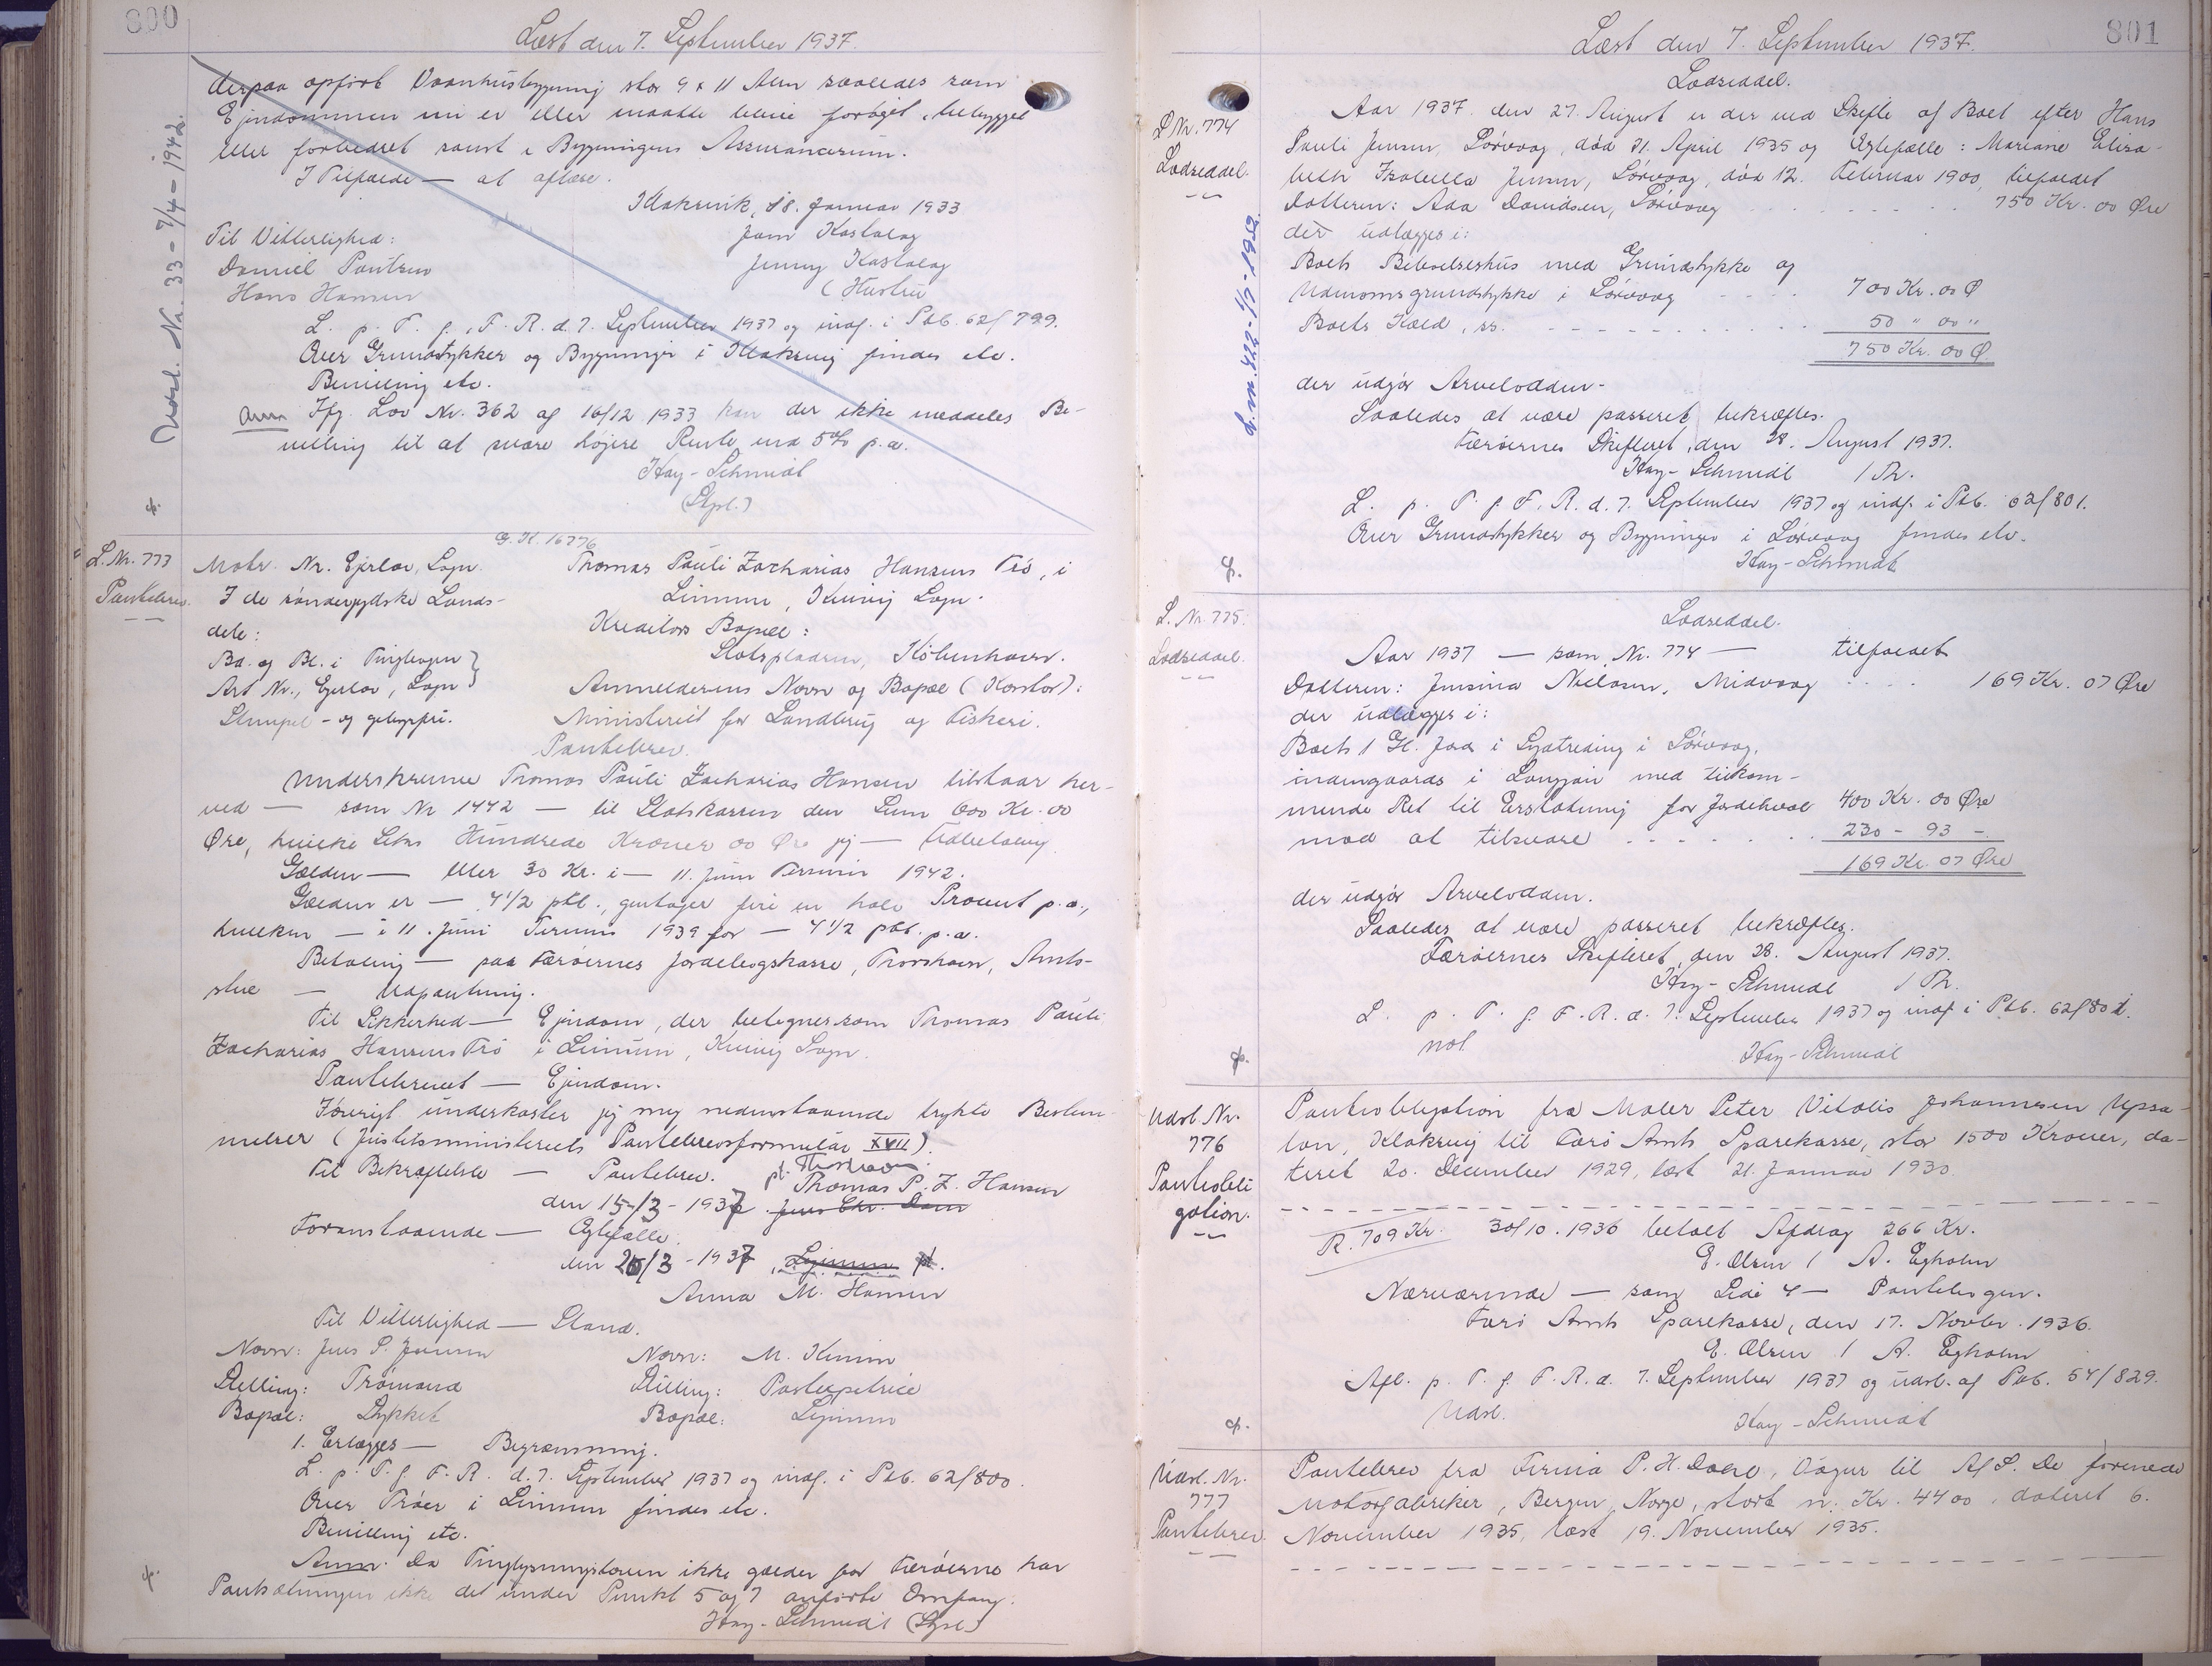 800
Læst den 7. September 1937.
Udsl. Nr. 33 - 7/4 - 1942.
derpaa opført Vaanhusbygning stor 9 x 11 Alen saaledes som
Ejendommen nu er eller maatte blive forøget, bebygget
eller forbedret samt i Bygningens Assurancesum.
I Tilfælde — at aflæse.
Klaksvik, 18. Januar 1933
Til Vitterlighed:
Daniel Poulsen
Hans Hansen
Jenny
(Hustru
L. p. T. f. F. R. d. 7. September 1937 og indf. i Ptb. 62/799.
Over Grundstykker og Bygninger i Klaksvig findes etc.
Bevilling etc.
Anm Ifg. Lov Nr. 362 af 16/12 1933 kan der ikke meddeles Be-
villing til at svare højere Rente end 5% p.a.
Hay-Schmidt
(Stpl.)
G. K. 16776
L. Nr. 773
Pantebrev.
Matr. Nr. Ejerlav, Sogn.
I de sønderjydske Lands-
dele:
Bd. og Bl. i Tingbogen
Art Nr., Ejerlav, Sogn
Stempel- og gebyrfri.
Thomas Pauli Zacharias Hansens Trø, i
Limum, Kvivig Sogn.
Kreditors Bopæl:
Slotspladsen, København.
Anmelderens Navn og Bopæl (Kontor):
Ministeriet for Landbrug og Fiskeri.
Pantebrev.
Underskrevne Thomas Pauli Zacharias Hansen tilstaar her-
ved — som Nr 1442 — til Statskassen den Sum 600 Kr. 00
Øre, hvilke Seks Hundrede Kroner 00 Øre jeg — Udbetaling
Gælden — eller 30 Kr. i — 11. Juni Termin 1942.
Gælden er — 4 1/2 pCt., gentager fire en halv Procent p.a.,
hvilken — i 11. Juni Termin 1939 for — 4 1/2 pCt. p.a.
Betaling — paa Færøernes Jordebogskasse, Thorshavn, Amts-
stue — Udpantning.
Til Sikkerhed — Ejendom, der betegnes som Thomas Pauli
Zacharias Hansens Trø i Limum, Kvivig Sogn.
Pantebrevet — Ejendom.
Iøvrigt underkaster jeg mig nedenstaaende trykte Bestem-
melser (Justitsministeriets Pantebrevsformular XVII).
Til Bekræftelse — Pantebrev. pt. Thorshavn.
Thomas P. Z. Hansen
den 15/3 - 1937. Jens Chr. Dam
Foranstaaende — Ægtefælle.
den 26/3 - 1937
Anna M. Hansen
Til Vitterlighed — Stand.
Navn: Jens P. Navn: M.
Stilling: Trømand Stilling:
Bopæl: Stykket Bopæl:
1. Erlægges — Begrænsning.
L. p. T. f. F. R. d. 7. September 1937 og indf. i Ptb. 62/800.
Over Trøer i Limum findes etc.
Bevilling etc.
Anm. Da Tinglysningsloven ikke gælder for Færøerne har
Pantsætningen ikke det under Punkt 5 og 7 anførte Omfang.
Hay-Schmidt (Stpl.)
801
Læst den 7. September 1937.
L. Nr. 774
Lodseddel.
d. m. 422 - 1/7 - 1952.
Lodseddel.
Aar 1937 den 27. August er der ved Skifte af Boet efter Hans
Pauli Jensen, Sørvaag, død 21. April 1935 og Ægtefælle: Mariane Elisa-
beth Isabella Jensen, Sørvaag, død 12. Februar 1900, tilfaldet
Datteren: Ada Davidsen, Sørvaag 750 Kr. 00 Øre
der udlægges i:
Boets Beboelseshus med Grundstykke og
Udenomsgrundstykke i Sørvaag 700 Kr. 00 Ø
Boets 50 " 00 "
750 Kr. 00 Ø.
der udgør Arvelodden.
Saaledes at være passeret bekræftes.
Færøernes Skifteret, den 28. August 1937.
Hay-Schmidt
L. p. T. f. F. R. d. 7. September 1937 og indf. i Ptb. 62/801.
Over Grundstykker og Bygninger i Sørvaag findes etc.
Hay-Schmidt
L. Nr. 775.
Lodseddel.
Lodseddel.
Aar 1937 — som Nr. 774 — tilfaldet
Datteren: Jensina Nielsen, Midvaag 169 Kr. 07 Øre
der udlægges i:
Boets 1 Gl. Jord i i Sørvaag,
indengaards i med tilkom-
mende Ret til Erstatning for Jordehval 400 Kr. 00 Øre
mod at tilsvare 230 - 93 -
169 Kr. 07 Øre
der udgør Arvelodden.
Saaledes at være passeret bekræftes.
Færøernes Skifteret, den 28. August 1937.
Hay-Schmidt
L. p. T. f. F. R. d. 7. September 1937 og indf. i Ptb. 62/801.
not.
Hay-Schmidt
Udsl. Nr.
776
Pantobli
gation.
Pantobligation fra Maler Peter Vitalis Johannesen Upsa-
lon, Klaksvig til Færø Amts Sparekasse, stor 1500 Kroner, da-
teret 20. December 1929, læst 21. Januar 1930.
R. 709 Kr. 30/10. 1936 betalt Afdrag 266 Kr.
E. Olsen / A. Egholm
Nærværende — som Side 4 — Pantebogen.
Færø Amts Sparekasse, den 17. Novbr. 1936.
E. Olsen / A. Egholm
Afl. p. T. f. F. R. d. 7. September 1937 og udsl. af Ptb. 54/829.
Udsl.
Hay-Schmidt
Udsl. Nr.
777
Pantebrev.
Pantebrev fra Firma P. H. Vaagur til A/S. De forenede
Motorfabriker, Bergen, Norge, stort n. Kr. 4400, dateret 6.
November 1935, læst 19. November 1935.